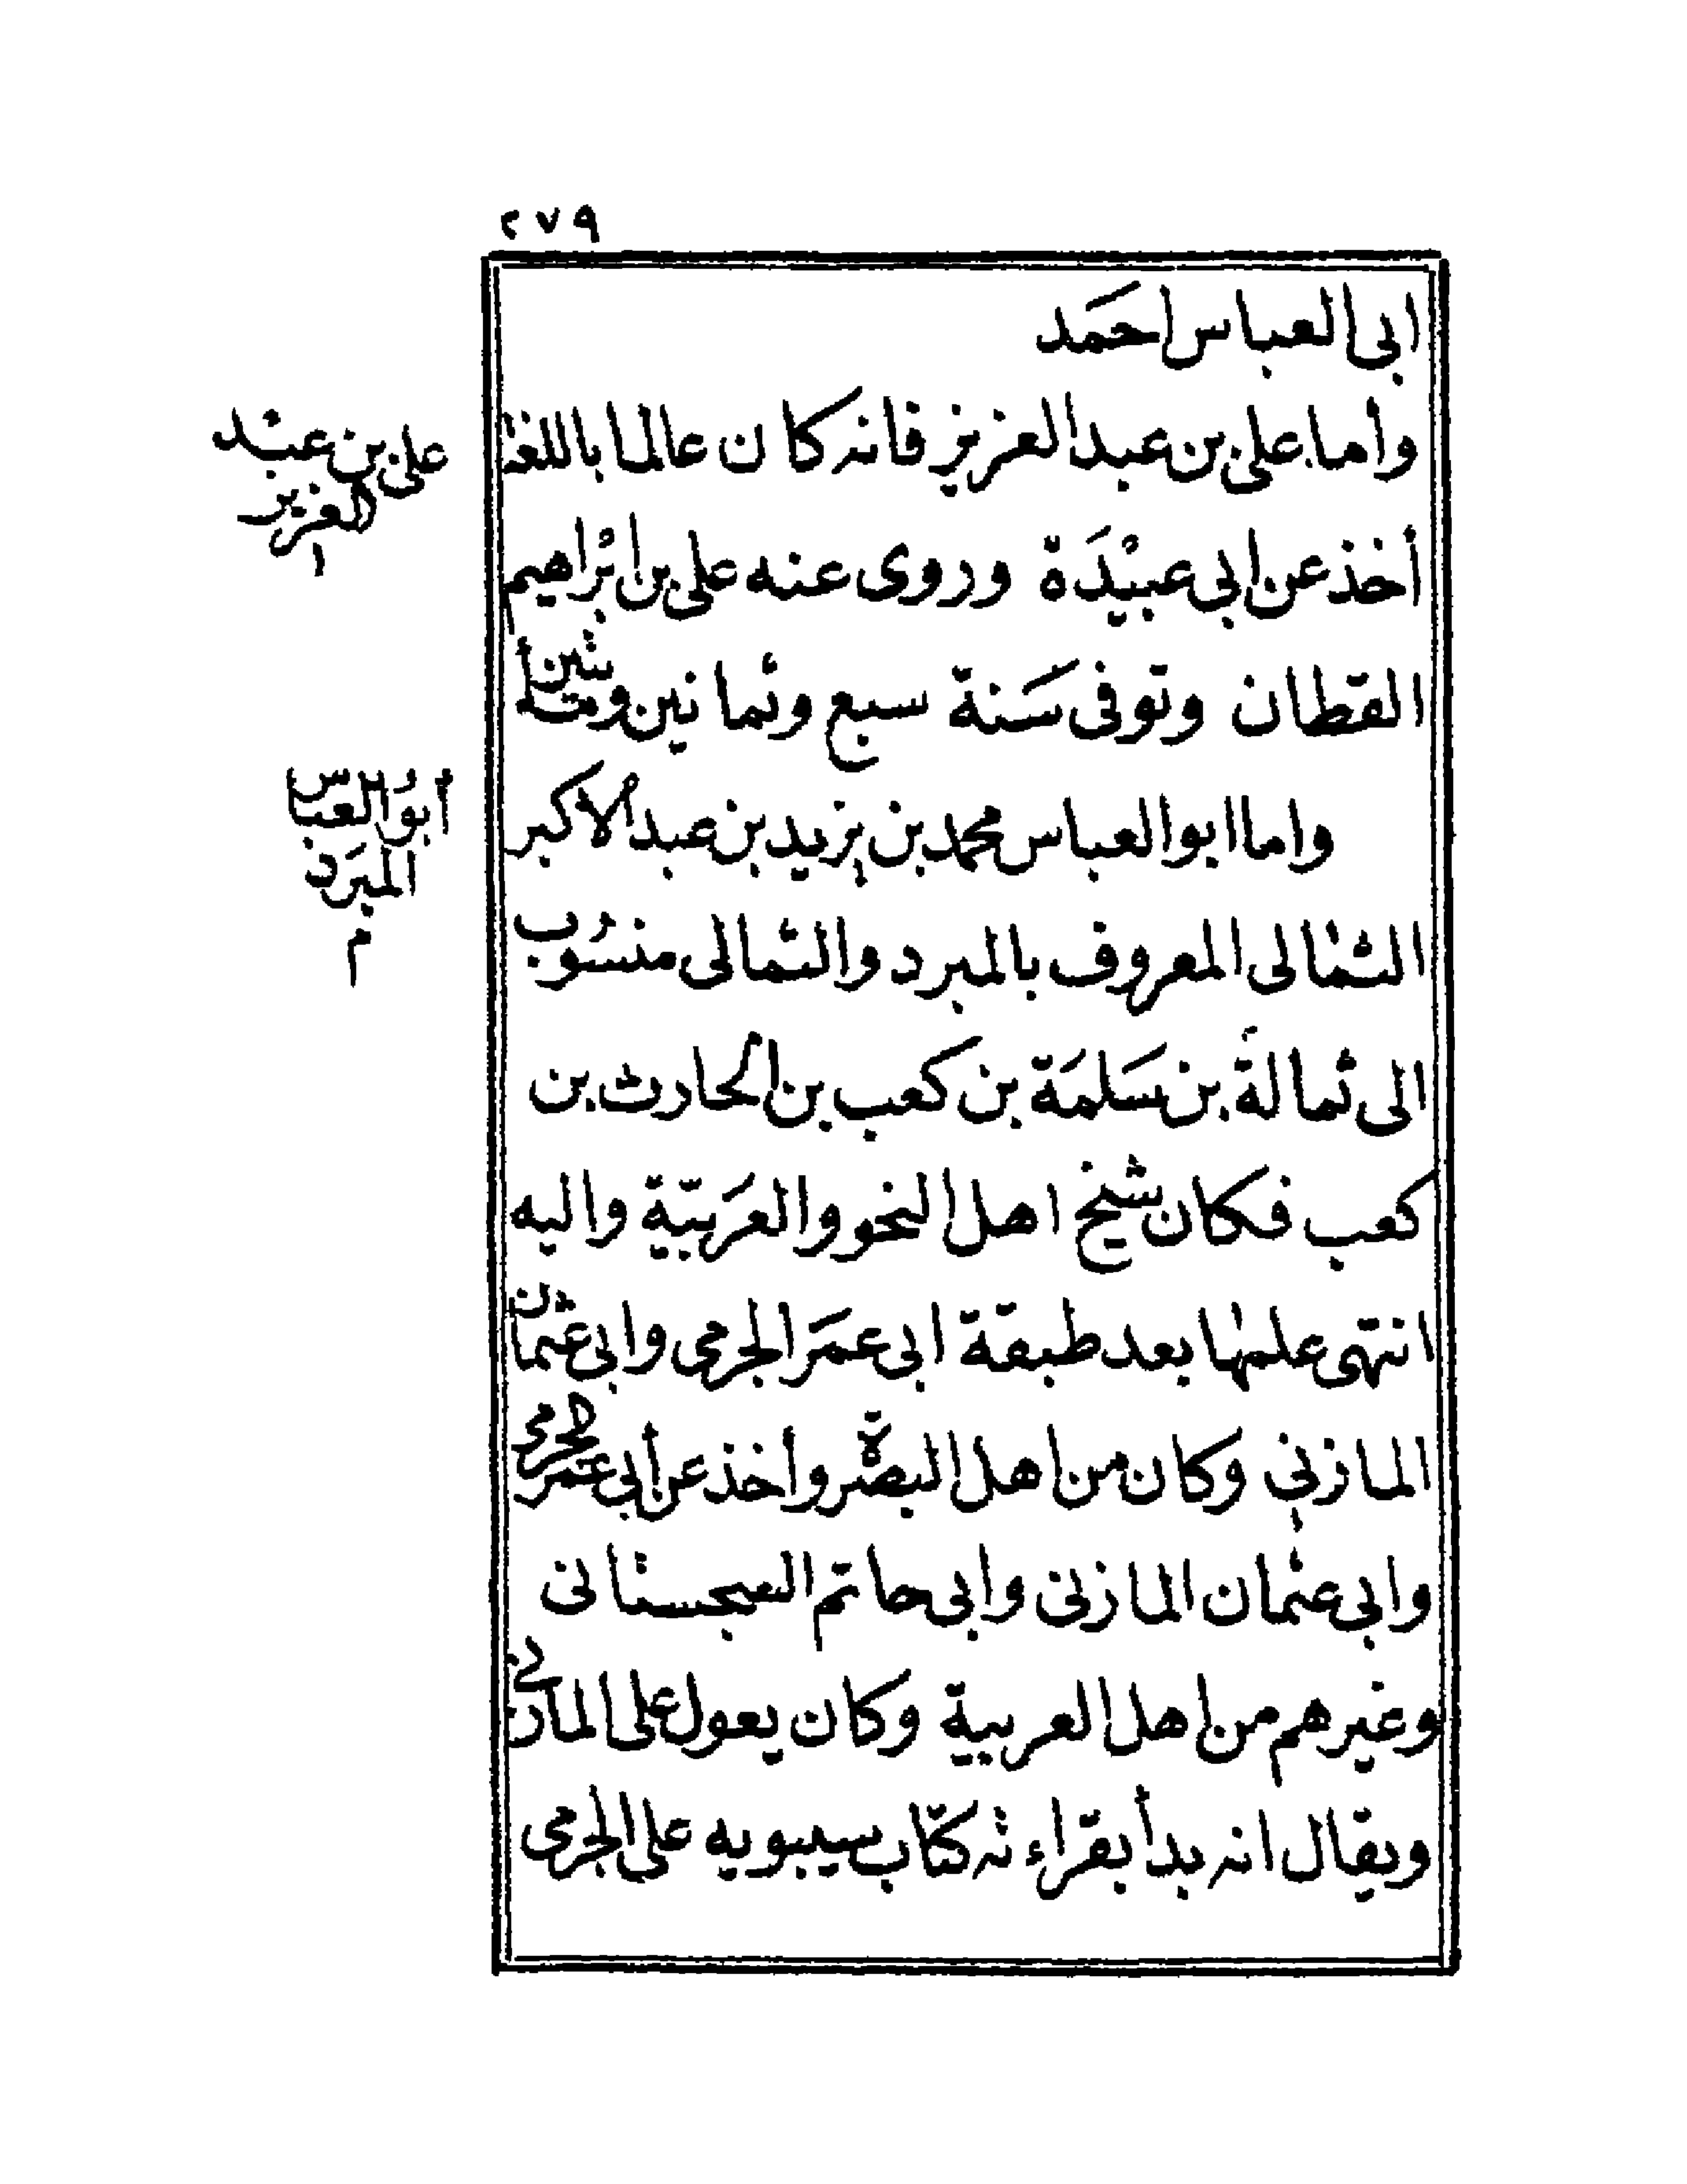 ٢٧٩
ابى العباس احمَد
وأما على بن عبد العزيز فانه كان عالما باللغة
على بن عبْد
العزيز
أخذ عن ابي عبيْدَة وروى عنه على بن ابْراهيم
القطان وتوفى سَنة سبع وثمانين ومأتين
واما ابو العباس محمد بن يزيد بن عبد الاكبر
أبوُ العباس
المبَرد
الثمالى المعروف بالمبرد والثمالى منسُوب
الى ثمالةَ بن سَلمَة بن كعب بن الحارث بن
كعب فكان شيخ اهل النحو والعَربيّة واليه
انتهى علمها بعد طبقة ابى عمَر الجرمى وابى عثمان
المازني وكان من اهل البصْرة وأخذ عن أبى عمر الجرمى
وابى عثمان المازنى وابى حاتم السجستانى
وغيرهم من اهل العربية وكان يعول على المازني
ويقال انه بدأ بقراءته كتاب سيبويه على الجرمى